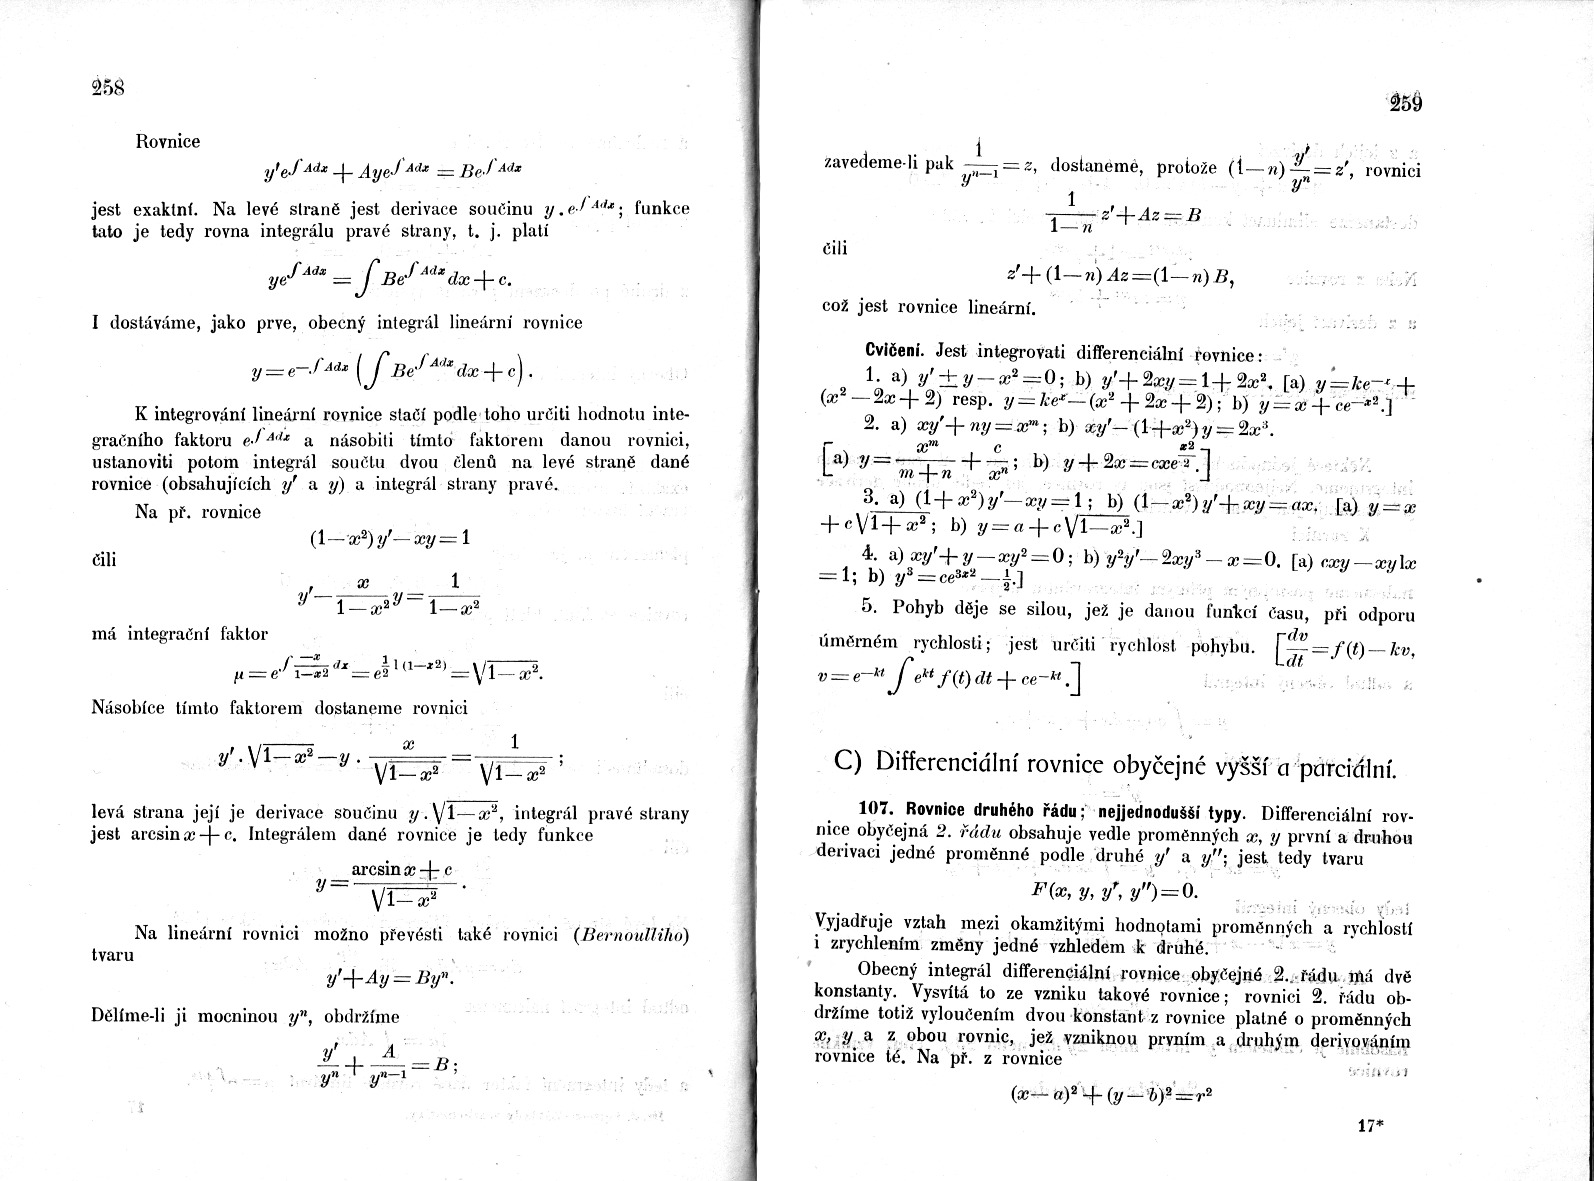 258
Rovnice
y′e^{∫Adx} + Aye^{∫Adx} = Be^{∫Adx}
jest exaktní. Na levé straně jest derivace součinu y . e^{∫Adx}; funkce
tato je tedy rovna integrálu pravé strany, t. j. platí
ye^{∫Adx} = ∫ Be^{∫Adx} dx + c.
I dostáváme, jako prve, obecný integrál lineární rovnice
y = e^{−∫Adx} (∫ Be^{∫Adx} dx + c) .
K integrování lineární rovnice stačí podle toho určiti hodnotu inte-
gračního faktoru e^{∫Adx} a násobiti tímto faktorem danou rovnici,
ustanoviti potom integrál součtu dvou členů na levé straně dané
rovnice (obsahujících y′ a y) a integrál strany pravé.
Na př. rovnice
(1—x²) y′—xy = 1
čili
y′ — \frac{x}{1—x²} y = \frac{1}{1—x²}
má integrační faktor
μ = e^{∫\frac{—x}{1—x²}dx} = e^{\frac{1}{2} l (1—x²)} = √(1—x²).
Násobíce tímto faktorem dostaneme rovnici
y′ . √(1—x²) — y . \frac{x}{√(1—x²)} = \frac{1}{√(1—x²)} ;
levá strana její je derivace součinu y . √(1—x²), integrál pravé strany
jest arcsin x + c. Integrálem dané rovnice je tedy funkce
y = \frac{arcsin x + c}{√(1—x²)} .
Na lineární rovnici možno převésti také rovnici (Bernoulliho)
tvaru
y′ + Ay = Byⁿ.
Dělíme-li ji mocninou yⁿ, obdržíme
\frac{y′}{yⁿ} + \frac{A}{y^{n—1}} = B ;
259
zavedeme-li pak \frac{1}{y^{n—1}} = z, dostaneme, protože (1—n) \frac{y′}{yⁿ} = z′, rovnici
\frac{1}{1—n} z′ + Az = B
čili
z′ + (1—n) Az = (1—n) B,
což jest rovnice lineární.
Cvičení. Jest integrovati differenciální rovnice:
1. a) y′ ± y — x² = 0; b) y′ + 2xy = 1 + 2x². [a) y = ke^{—x} +
(x² — 2x + 2) resp. y = ke^{x} — (x² + 2x + 2); b) y = x + ce^{—x²}.]
2. a) xy′ + ny = x^{m}; b) xy′ — (1 + x²) y = 2x³.
[a) y = \frac{x^{m}}{m + n} + \frac{c}{xⁿ}; b) y + 2x = cxe^{\frac{x²}{2}}.]
3. a) (1 + x²) y′ — xy = 1; b) (1—x²) y′ + xy = ax. [a) y = x
+ c√(1 + x²); b) y = a + c√(1—x²).]
4. a) xy′ + y — xy² = 0; b) y²y′ — 2xy³ — x = 0. [a) cxy — xylx
= 1; b) y³ = ce^{3x²} — \frac{1}{2}.]
5. Pohyb děje se silou, jež je danou funkcí času, při odporu
úměrném rychlosti; jest určiti rychlost pohybu. [\frac{dv}{dt} = f(t) — kv,
v = e^{—kt} ∫ e^{kt} f(t) dt + ce^{—kt}.]
C) Differenciální rovnice obyčejné vyšší a parciální.
107. Rovnice druhého řádu; nejjednodušší typy. Differenciální rov-
nice obyčejná 2. řádu obsahuje vedle proměnných x, y první a druhou
derivaci jedné proměnné podle druhé y′ a y″; jest tedy tvaru
F (x, y, y′, y″) = 0.
Vyjadřuje vztah mezi okamžitými hodnotami proměnných a rychlostí
i zrychlením změny jedné vzhledem k druhé.
Obecný integrál differenciální rovnice obyčejné 2. řádu má dvě
konstanty. Vysvítá to ze vzniku takové rovnice; rovnici 2. řádu ob-
držíme totiž vyloučením dvou konstant z rovnice platné o proměnných
x, y a z obou rovnic, jež vzniknou prvním a druhým derivováním
rovnice té. Na př. z rovnice
(x — a)² + (y — b)² = r²
17*